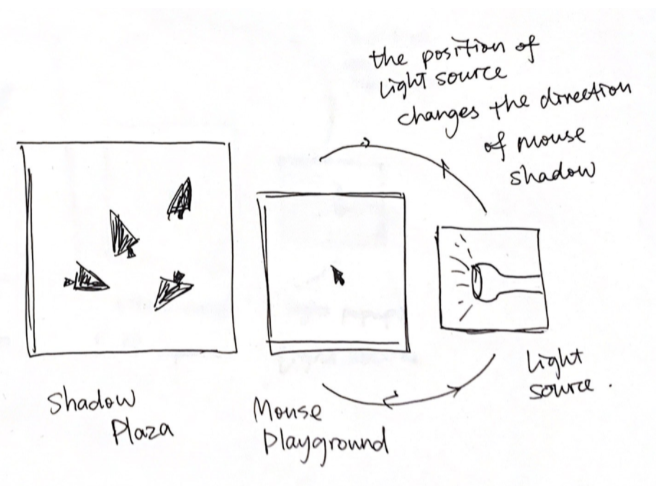 the position of
light source
changes the direction
of mouse
shadow
Shadow
Plaza
Mouse
playground
light
source.